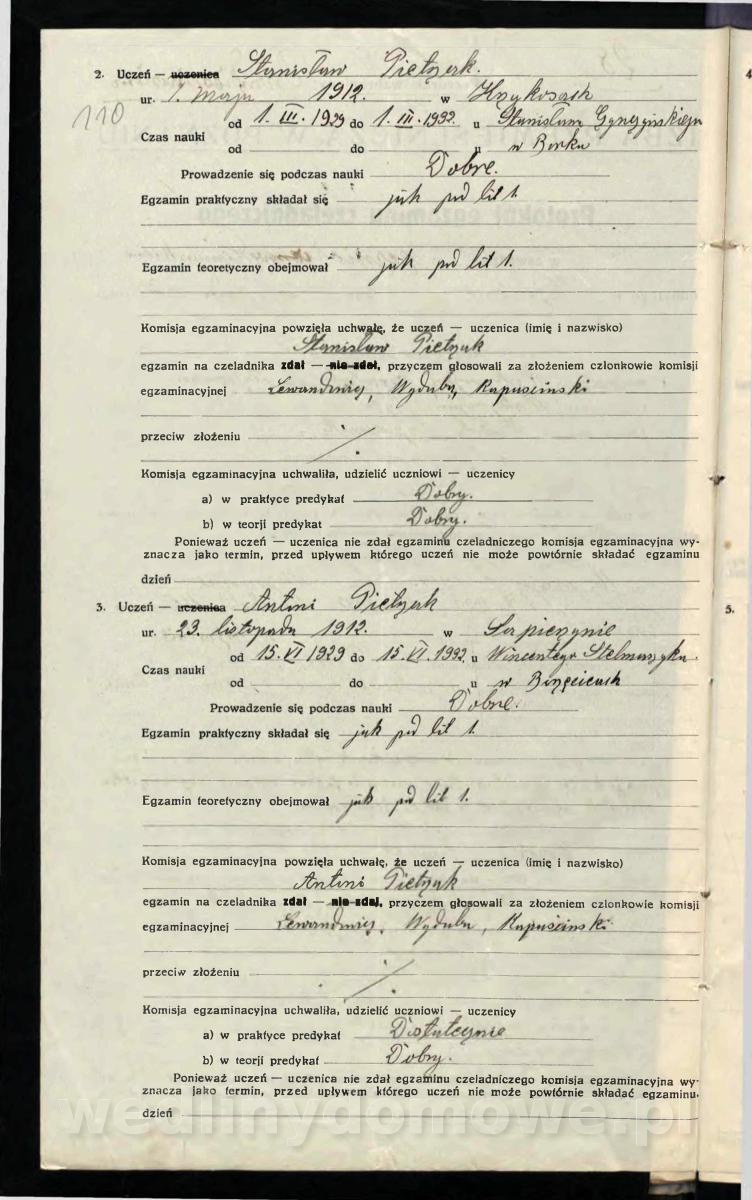 2. Uczeń — uczenica Stanisław Pietrzak.
ur. 1. Maja 1912. w
110
od 1. III. 1929 do 1. III. 1932. u Stanisława
Czas nauki
od do u w Borku
Prowadzenie się podczas nauki Dobre.
Egzamin praktyczny składał się jak pod lit 1.
Egzamin teoretyczny obejmował jak pod lit 1.
Komisja egzaminacyjna powzięła uchwałę, że uczeń — uczenica (imię i nazwisko)
Stanisław Pietrzak
egzamin na czeladnika zdał — nie zdał, przyczem głosowali za złożeniem członkowie komisji
egzaminacyjnej Lewandowicz, Wyduba, Kapuściński
przeciw złożeniu ./.
Komisja egzaminacyjna uchwaliła, udzielić uczniowi — uczenicy
a) w praktyce predykat Dobry.
b) w teorji predykat Dobry.
Ponieważ uczeń — uczenica nie zdał egzaminu czeladniczego komisja egzaminacyjna wy-
znacza jako termin, przed upływem którego uczeń nie może powtórnie składać egzaminu
dzień
3. Uczeń — uczenica Antoni Pietrzak
ur. 23. listopada 1912. w
od 15. VI 1929 do 15. VI. 1932. u Wincentego Stelmaszyka
Czas nauki
od do u w
Prowadzenie się podczas nauki Dobre.
Egzamin praktyczny składał się jak pod lit 1.
Egzamin teoretyczny obejmował jak pod lit 1.
Komisja egzaminacyjna powzięła uchwałę, że uczeń — uczenica (imię i nazwisko)
Antoni Pietrzak
egzamin na czeladnika zdał — nie zdał, przyczem głosowali za złożeniem członkowie komisji
egzaminacyjnej Lewandowicz, Wyduba, Kapuściński
przeciw złożeniu ./.
Komisja egzaminacyjna uchwaliła, udzielić uczniowi — uczenicy
a) w praktyce predykat Dostatecznie
b) w teorji predykat Dobry.
Ponieważ uczeń — uczenica nie zdał egzaminu czeladniczego komisja egzaminacyjna wy-
znacza jako termin, przed upływem którego uczeń nie może powtórnie składać egzaminu.
dzień
wedlinydomowe.pl
4
5.